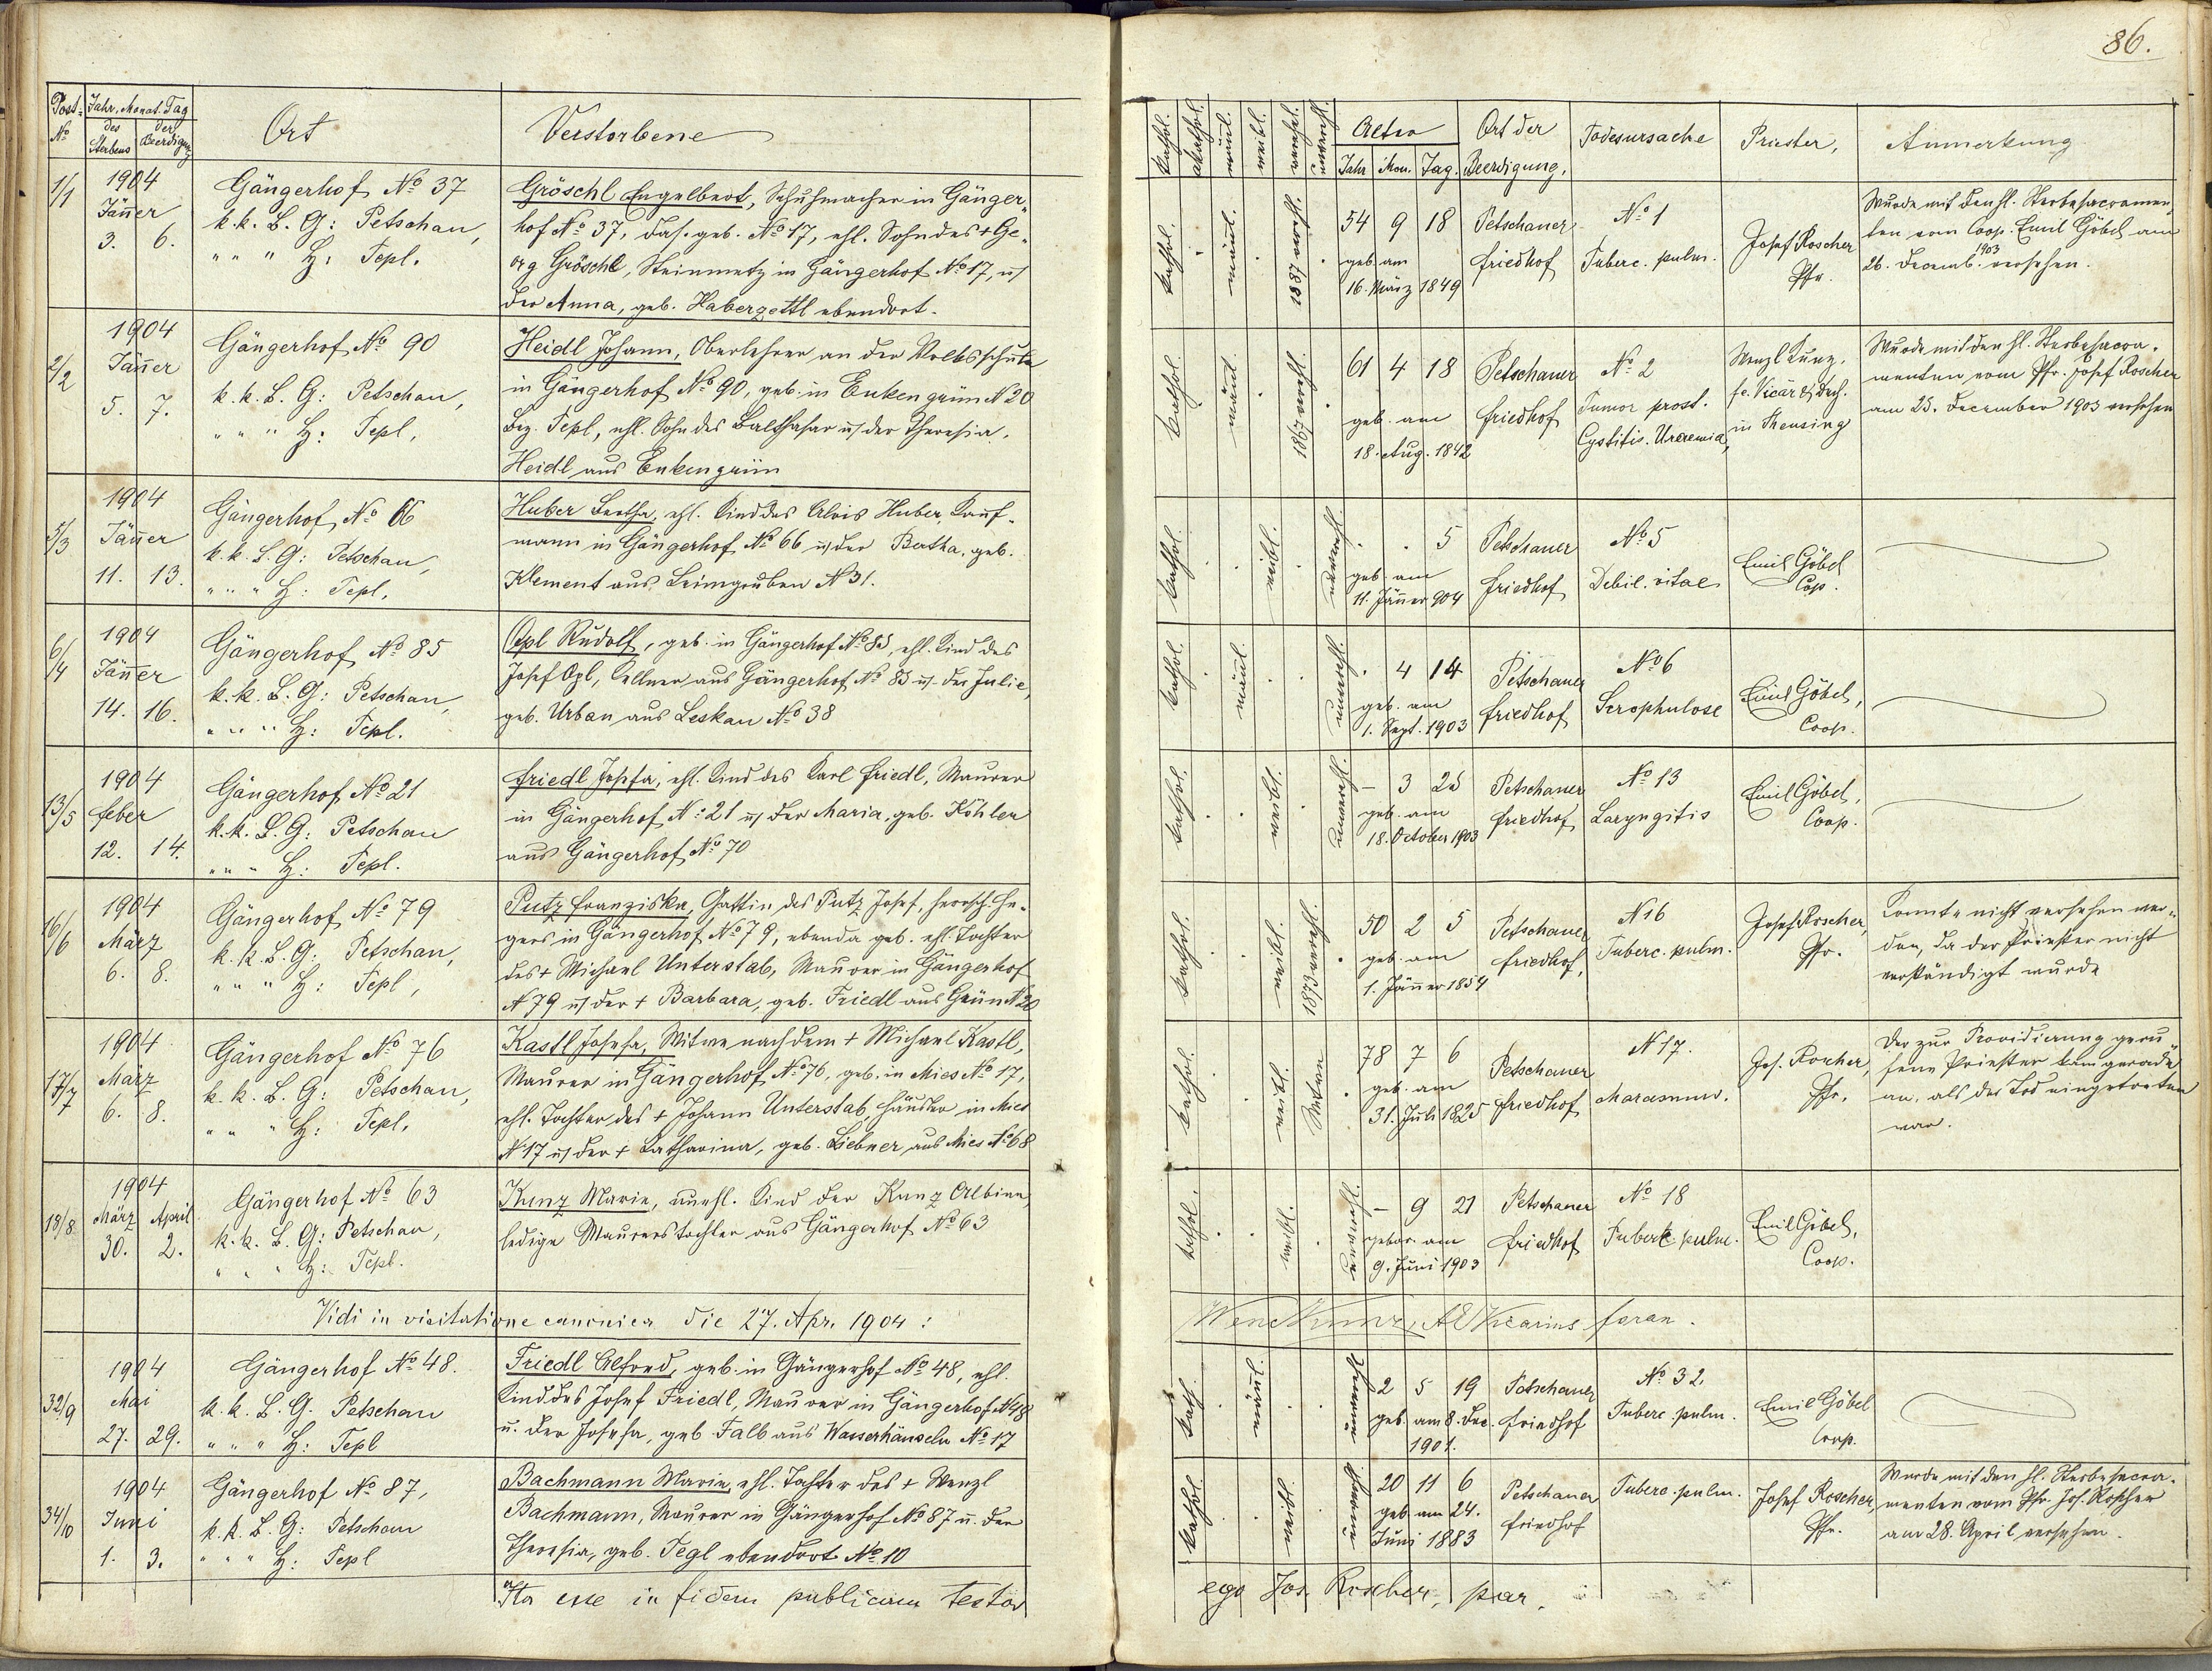 Post-No
Jahr, Monat, Tag
des Sterbens
der Beerdigung
Ort
Verstorbene
1/1
1904
Jäner
3. 6.
Gängerhof No 37
k.k. B. G: Petschau,
" " " H: Tepl.
Gröschl Engelbert, Schuhmacher in Gänger-
hof No 37, das. geb. No 17, ehl. Sohn des + Ge-
org Gröschl, Steinmetz in Gängerhof No 17, u/
der Anna, geb. Haberzettl ebendort.
2/2
1904
Jäner
5. 7.
Gängerhof No 90
k.k. B. G: Petschau,
" " " H: Tepl,
Heidl Johann, Oberlehrer an der Volksschule
in Gängerhof No 90, geb. in Enkengrün N 20
Bez. Tepl, ehl. Sohn des Balthasar u/ der Theresia.
Heidl aus Enkengrün
5/3
1904
Jäner
11. 13.
Gängerhof No 66
k.k. B. G: Petschau,
" " " H: Tepl,
Huber Bertha, ehl. Kind des Alois Huber, Kauf-
mann in Gängerhof No 66 u/ der Bertha, geb.
Klement aus Leimgruben N 31.
6/4
1904
Jäner
14. 16.
Gängerhof No 85
k.k. B. G: Petschau,
" " " H: Tepl.
Opl Rudolf, geb. in Gängerhof No 85, ehl. Kind des
Josef Opl, Kellner aus Gängerhof No 85 u/ der Julie,
geb. Urban aus Leskau No 38
13/5
1904
Feber
12. 14.
Gängerhof No 21
k.k. B. G: Petschau
" " " H: Tepl.
Friedl Josefa, ehl. Kind des Karl Friedl, Maurer
in Gängerhof No 21 u/ der Maria, geb. Köhler
aus Gängerhof No 70
16/6
1904
März
6. 8.
Gängerhof No 79
k.k. B. G: Petschau,
" " " H: Tepl,
Putz Franziska, Gattin des Putz Josef, herrsch. He-
gers in Gängerhof No 79, ebenda geb. ehl. Tochter
des + Michael Unterstab, Maurer in Gängerhof
N 79 u/ der + Barbara, geb. Friedl aus Grün N 20
17/7
1904
März
6. 8.
Gängerhof No 76
k.k. B. G: Petschau,
" " " H: Tepl.
Kastl Josefa, Witwe nach dem + Michael Kastl,
Maurer in Gängerhof No 76, geb. in Mies No 17,
ehl. Tochter des + Johann Unterstab, Häusler in Mies
N 17 u/ der + Katharina, geb. Liebner, aus Mies No 68
18/8
1904
März April
30. 2.
Gängerhof No 63
k.k. B. G: Petschau,
" " " H: Tepl.
Kunz Marie, unehl. Kind der Kunz Albine,
ledige Maurerstochter aus Gängerhof No 63
Vidi in visitatione canonica die 27. Apr. 1904:
32/9
1904
Mai
27. 29.
Gängerhof No 48.
k.k. B. G. Petschau
" " " H: Tepl
Friedl Alfred, geb. in Gängerhof No 48, ehl.
Kind des Josef Friedl, Maurer in Gängerhof N 48
u. der Josefa, geb. Falb aus Wasserhäuseln No 17
34/10
1904
Juni
1. 3.
Gängerhof No 87,
k.k. B. G: Petschau
" " " H: Tepl
Bachmann Marie, ehl. Tochter des + Wenzl
Bachmann, Maurer in Gängerhof No 87 u. der
Theresia, geb. Tegl ebendort No 10
Ita esse in fidem publicam testor
86.
kathol.
akathol.
männl.
weibl.
verehel.
unverehl.
Alter
Jahr Mon. Tag.
Ort der Beerdigung.
Todesursache
Priester,
Anmerkung
kathol. männl. 1887 verehl.
54 9 18
geb. am
16. März 1849
Petschauer
Friedhof
No 1
Tuberc. pulm.
Josef Roscher
Pfr.
Wurde mit den hl. Sterbesacramen-
ten vom Coop. Emil Göbel am
26. Decemb. 1903 versehen.
kathol. männl. 1867 verehl.
61 4 18
geb. am
18. Aug. 1842
Petschauer
Friedhof
No 2
Tumor prost.
Cystitis. Uraemia,
Wenzl Kunz,
fe. Vicär & Dech.
in Theusing
Wurde mit den hl. Sterbesacra-
menten vom Pfr. Josef Roscher
am 25. December 1903 versehen
kathol. weibl. unverehl.
. . 5
geb. am
11. Jänner 904
Petschauer
Friedhof
No 5
Debil. vitae
Emil Göbel
Cop.
kathol. männl. unverehl.
. 4 14
geb. am
1. Sept. 1903
Petschauer
Friedhof
No 6
Scrophulose
Emil Göbel,
Coop.
kathol. weibl. unverehl.
– 3 25
geb. am
18. October 1903
Petschauer
Friedhof
No 13
Laryngitis
Emil Göbel,
Coop.
kathol. weibl. 1873 verehl.
50 2 5
geb. am
1. Jänner 1854
Petschauer
Friedhof,
N 16
Tuberc. pulm.
Josef Roscher,
Pfr.
Konnte nicht versehen wer-
den, da der Priester nicht
verständigt wurde
kathol. weibl. Witwe
78 7 6
geb. am
31. Juli 1825
Petschauer
Friedhof
N 17.
Marasmus.
Jos. Roscher,
Pfr.
Der zur Providierung geru-
fene Priester kam gerade
an, als der Tod eingetreten
war.
kathol. weibl. unverehl.
– 9 21
gebor. am
9. Juni 1903
Petschauer
Friedhof
No 18
Tuberk. pulm.
Emil Göbel,
Coop.
Wenc Kunz, Vicarius foran.
kath. männl. unverehl
2 5 19
geb. am 8. Dec.
1901.
Petschauer
Friedhof
No 32.
Tuberc. pulm.
Emil Göbel
Coop.
kathol. weibl. unverehl
20 11 6
geb. am 24.
Juni 1883
Petschauer
Friedhof
Tuberc. pulm.
Josef Roscher,
Pfr.
Wurde mit den hl. Sterbesacra-
menten vom Pfr. Jos. Roscher
am 28. April versehen.
ego Jos. Roscher, par.